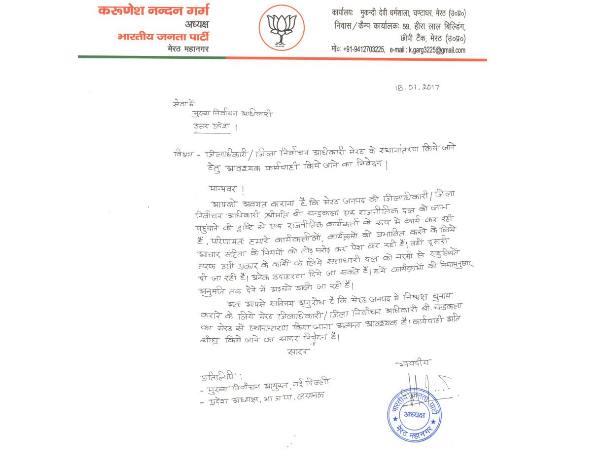 करूणेश नन्दन गर्ग
अध्यक्ष
भारतीय जनता पार्टी
मेरठ महानगर
कार्यालय: मुकन्दी देवी धर्मशाला, घण्टाघर, मेरठ (उ०प्र०)
निवास/कैम्प कार्यालय: 59, हीरा लाल बिल्डिंग,
छीपी टैंक, मेरठ (उ०प्र०)
मो०: +91-9412703225, e-mail : k.garg3225@gmail.com
18.01.2017
सेवा में
मुख्य निर्वाचन अधिकारी
उत्तर प्रदेश।
विषय - जिलाधिकारी/जिला निर्वाचन अधिकारी मेरठ के स्थानांतरण किये जाने
हेतु आवश्यक कार्यवाही किये जाने का निवेदन।
मान्यवर!
आपको अवगत कराना है कि मेरठ जनपद की जिलाधिकारी/जिला
निर्वाचन अधिकारी श्रीमति बी चन्द्रकला एक राजनीतिक दल को लाभ
पहुंचाने की दृष्टि से एक राजनीतिक कार्यकर्ता के रूप में कार्य कर रही
है, परिणामतः हमारे कार्यकर्ताओं, कार्यक्रमों को प्रभावित करने के लिये
आचार संहिता के नियमों को तोड़ मरोड़ कर पेश कर रही हैं। वहीं दूसरी
तरफ उसी प्रकार के कार्यों के लिये सत्ताधारी दल को नरमी से
दी जा रही हैं। अनेक उदाहरण दिये जा सकते हैं। हमें कार्यक्रमों की नियमानुसार
अनुमति तक देने में अड़चने डाली जा रही हैं।
अतः आपसे सविनय अनुरोध है कि मेरठ जनपद में निष्पक्ष चुनाव
कराने के लिये मेरठ जिलाधिकारी/जिला निर्वाचन अधिकारी बी. चन्द्रकला
का मेरठ से स्थानान्तरण किया जाना अत्यन्त आवश्यक है। कार्यवाही अति
शीघ्र किये जाने का सादर निवेदन है।
सादर
भवदीय
प्रतिलिपि:-
- मुख्य निर्वाचन आयुक्त, नई दिल्ली
- प्रदेश अध्यक्ष, भा.ज.पा. लखनऊ
भारतीय जनता पार्टी
अध्यक्ष
मेरठ महानगर